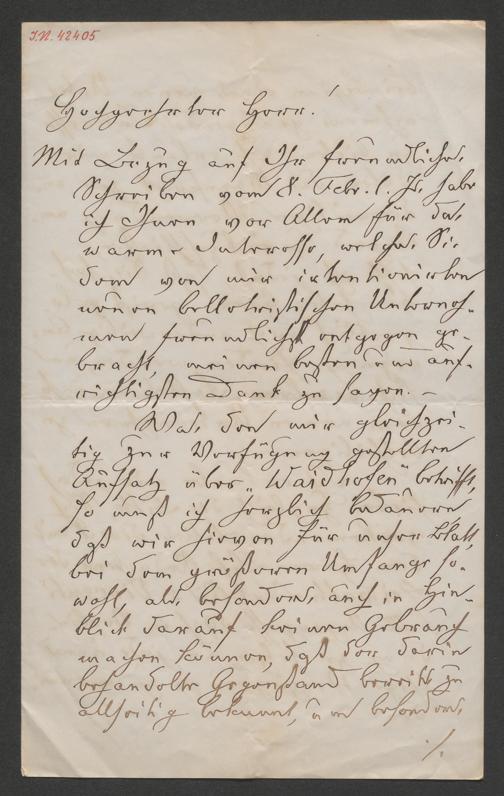 I.N. 42405
Hochgeehrter Herr!
Mit Bezug auf Ihr freundliches
Schreiben vom 8. Febr. l. Js. habe
ich Ihnen vor Allem für das
warme Interesse, welches Sie
dem von mir intentionirten
neuen belletristischen Unterneh-
men freundlichst entgegen ge-
bracht, meinen besten und auf-
richtigsten Dank zu sagen. –
Was den mir gleichzei-
tig zur Verfügung gestellten
Aufsatz über „Waidhofen" betrifft,
so muß ich herzlich bedauern
daß wir hievon für unser Blatt,
bei dem größeren Umfange so-
wohl, als besonders auch in Hin-
blick darauf keinen Gebrauch
machen können, daß der darin
behandelte Gegenstand bereits zu
allseitig bekannt, und besonders
./.